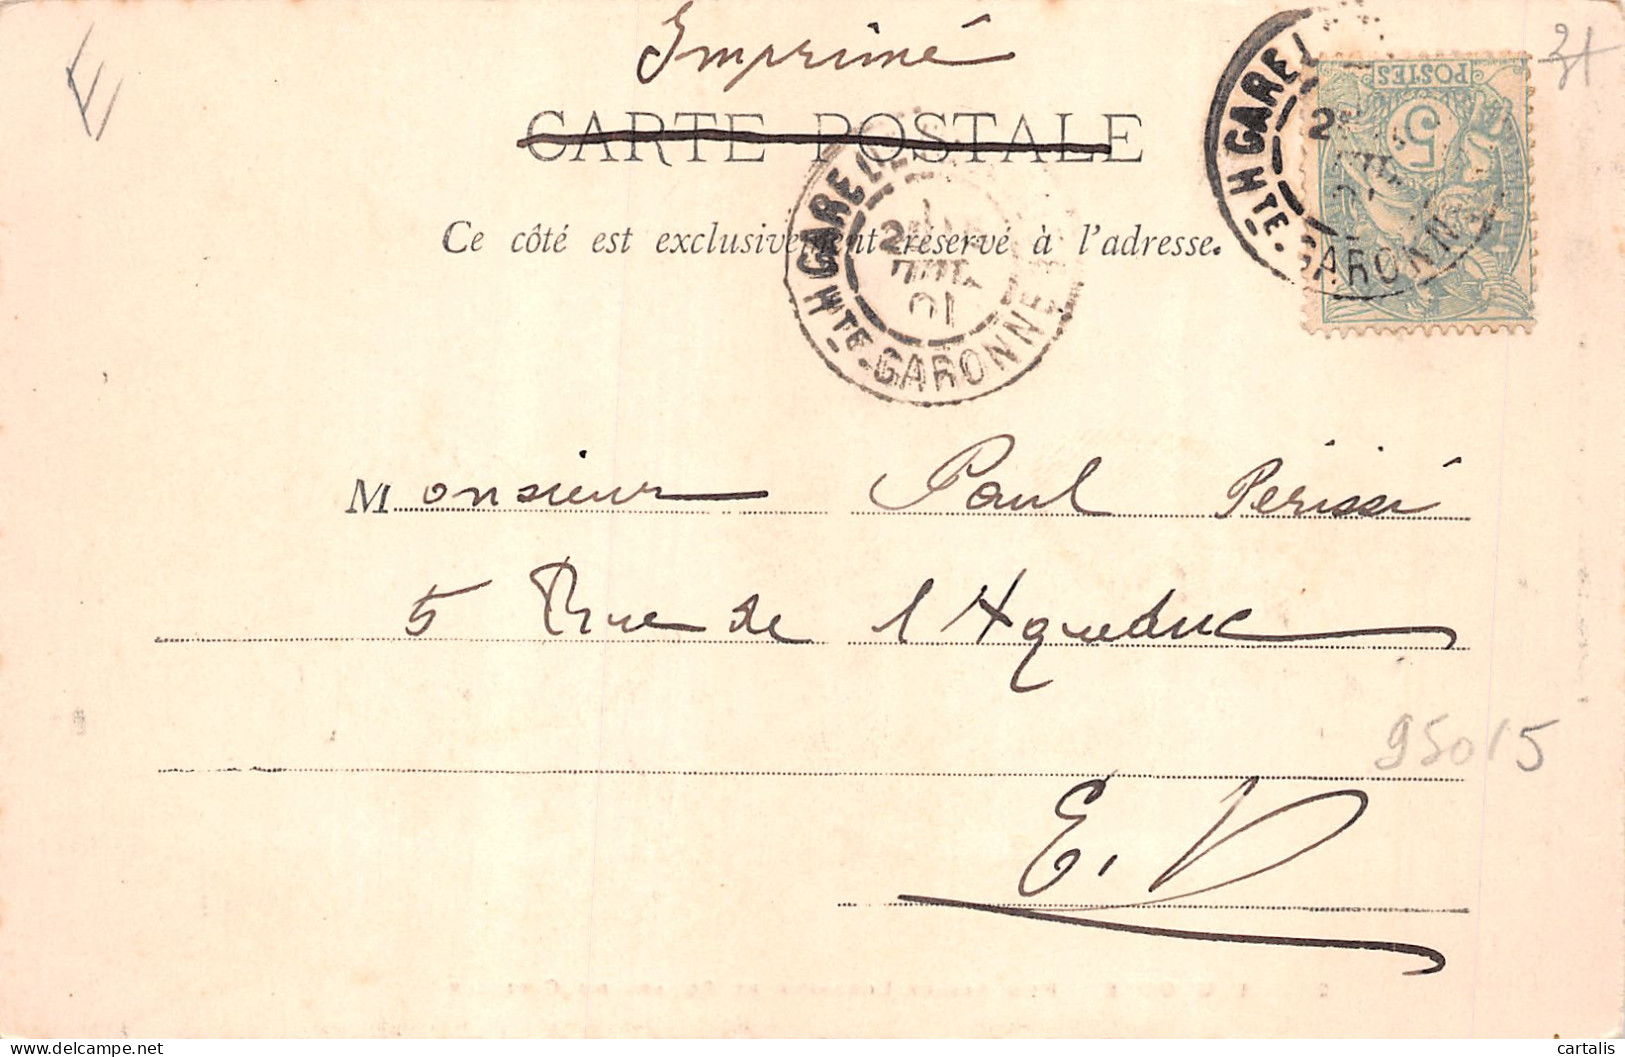 Imprimé
31
CARTE POSTALE
POSTES
5
Ce côté est exclusivement réservé à l'adresse.
GARE
Hte-GARONNE
01
GARE
Hte-GARONNE
Monsieur Paul Périssé
5 Rue de l'Aqueduc
95015
E.V
cartalis